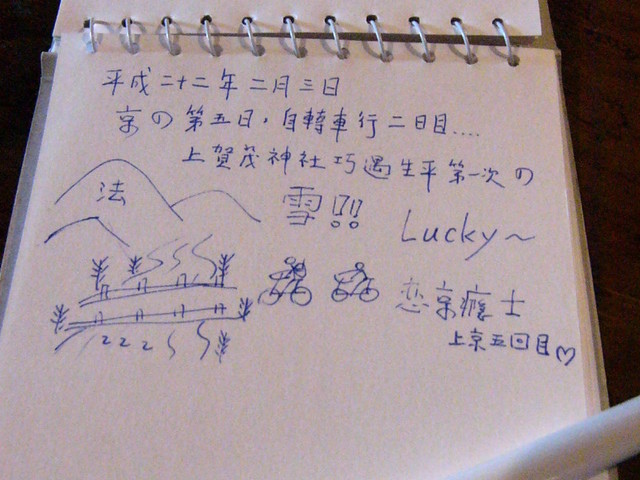 平成二十二年二月三日
京の第五日，自轉車行二日目....
上賀茂神社巧遇生平第一次の
雪!!
Lucky～
法
恋京癮士
上京五回目♡